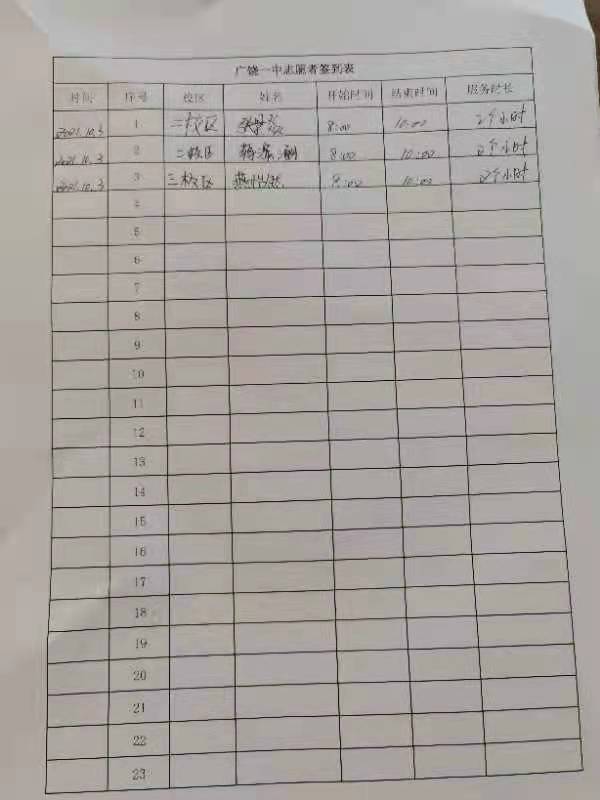 广饶一中志愿者签到表
时间 序号 校区 姓名 开始时间 结束时间 服务时长
2021.10.3 1 二校区 8:00 10:00 2个小时
2021.10.3 2 二校区 8:00 10:00 2个小时
2021.10.3 3 三校区 8:00 10:00 2个小时
4
5
6
7
8
9
10
11
12
13
14
15
16
17
18
19
20
21
22
23